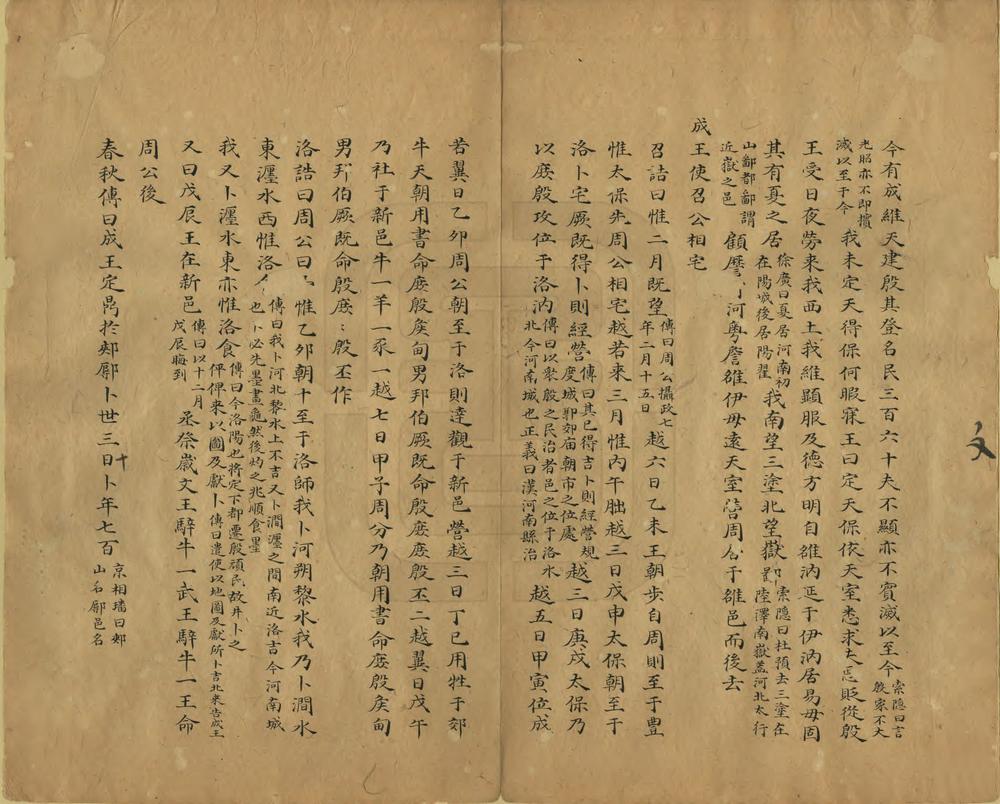 今有成維天建殷其登名民三百六十夫不顯亦不賓滅以至今索隱曰言殷家不大
光昭亦不即擯滅以至于今我未定天得保何暇寐王曰定天保依天室悉求夫惡貶從殷
王受日夜勞來我西土我維顯服及德方明自雒汭延于伊汭居易毋固
其有夏之居徐廣曰夏居河南初在陽城後居陽翟我南望三塗北望嶽索隱曰杜預云三塗在陸澤南嶽蓋河北太行
山鄙都鄙謂近嶽之邑顧詹河粵詹雒伊毋遠天室營周公于雒邑而後去
成王使召公相宅
召誥曰惟二月既望傳曰周公攝政七年二月十五日越六日乙未王朝步自周則至于豐
惟太保先周公相宅越若來三月惟丙午朏越三日戊申太保朝至于
洛卜宅厥既得卜則經營傳曰其已得吉卜則經營規度城郭郊廟朝市之位處越三日庚戌太保乃
以庶殷攻位于洛汭傳曰以眾殷之民治者邑之位于洛水北今河南城也正義曰漢河南縣治越五日甲寅位成
若翼日乙卯周公朝至于洛則達觀于新邑營越三日丁巳用牲于郊
牛天朝用書命庶殷侯甸男邦伯厥既命殷庶庶殷丕二越翼日戊午
乃社于新邑牛一羊一豕一越七日甲子周分乃朝用書命庶殷侯甸
男邦伯厥既命殷庶〻殷丕作
洛誥曰周公曰惟乙卯朝十至于洛師我卜河朔黎水我乃卜澗水
東瀍水西惟洛食傳曰我卜河北黎水上不吉又卜澗瀍之間南近洛吉今河南城也卜必先墨畫龜然後灼之兆順食墨
我又卜瀍水東亦惟洛食傳曰今洛陽也將定下都遷殷頑民故并卜之伻來以圖及獻卜傳曰遣使以地圖及獻所卜吉兆來告成王
又曰戊辰王在新邑傳曰以十二月戊辰晦到烝祭歲文王騂牛一武王騂牛一王命
周公後
春秋傳曰成王定鼎於郟鄏卜世三十日卜年七百京相璠曰郟山名鄏邑名